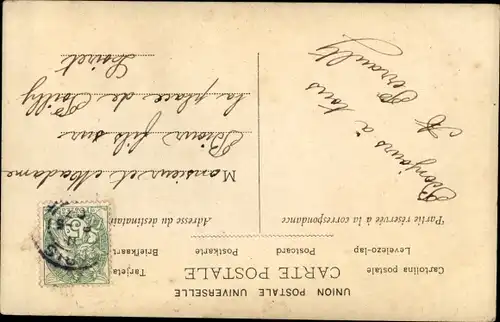 UNION POSTALE UNIVERSELLE
CARTE POSTALE
Cartolina postale Levelezo-lap Briefkaart Tarjeta
Postcard Postkarte
Partie réservée à la correspondance
Adresse du destinataire
Bonjours à tous
Perrault
Monsieur et Madame
fils sur
la place de Poilly
Loiret